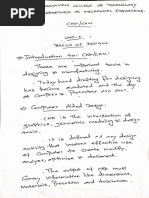 COLLEGE OF TECHNOLOGY
DEPARTMENT OF MECHANICAL ENGINEERING.
CAD/CAM
UNIT-I :
BASICS OF DESIGN
⇒ Introduction to: CAD/CAM:
These are important tools in
designing & manufacturing.
Today hand drafting for designs
has become outdated and the day
of Computers & printers are on.
⇒ Computer Aided Design:
CAD is the intersection of
graphics, geometric modeling & design
tools.
It is defined as any design
activity that involves effective use
of Computer to create modify,
analyse, optimise & document.
The output of CAD must
Convey information like dimensions,
materials, Processes and tolerance.